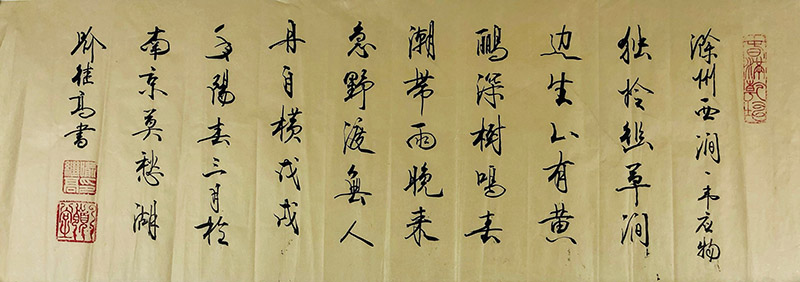 滁州西涧、韦应物
独怜幽草涧
边生上有黄
鹂深樹鸣春
潮带雨晚来
急野渡無人
舟自横戊戌
年陽春三月於
南京莫愁湖
高書